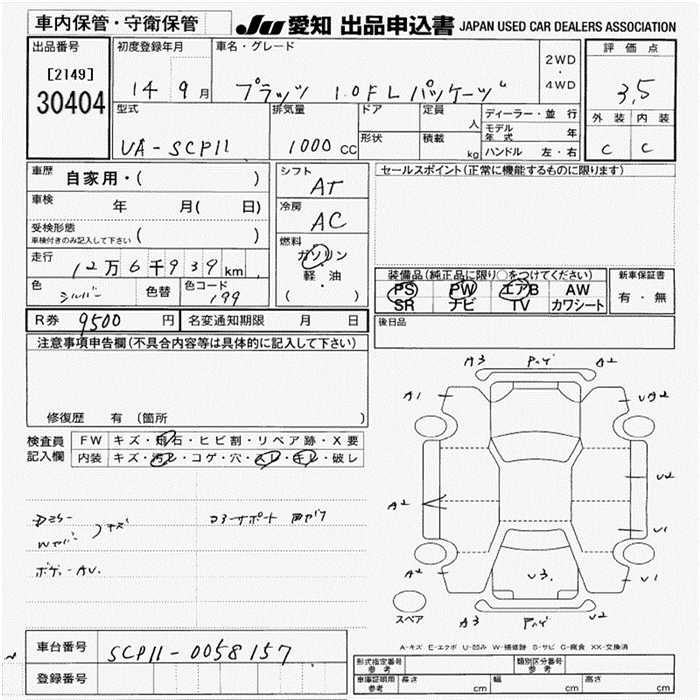 車内保管・守衛保管
JU 愛知 出品申込書 JAPAN USED CAR DEALERS ASSOCIATION
出品番号 初度登録年月 車名・グレード 評価点
[2149] 14 9月 プラッツ 1.0 F L パッケージ 2WD・4WD 3.5
30404
型式 排気量 ドア 定員 人 ディーラー・並行 外装 内装
UA-SCP11 1000 CC 形状 積載 kg モデル年式 年 C C
ハンドル 左・右
車歴 自家用・( ) シフト AT セールスポイント(正常に機能するものに限ります)
車検 年 月( 日) 冷房 AC
受検形態 車検付きのみ記入して下さい ( )
走行 12万6千939km 燃料 ガソリン・軽・油 ( )
装備品(純正品に限り○をつけてください) 新車保証書
色 シルバー 色替 色コード 199 PS PW エアB AW 有・無
SR ナビ TV カワシート
R券 9500 円 名変通知期限 月 日 後日品
注意事項申告欄(不具合内容等は具体的に記入して下さい)
修復歴 有 (箇所 )
検査員記入欄 FW キズ・飛石・ヒビ割・リペア跡・X要
内装 キズ・汚レ・コゲ・穴・スレ・キレ・破レ
A3 A2
A1 UA2
A2 U2
U1
A2 U3. U1
A3 U2
キズ コアサポート
ボディ-AU.
スペア
A-キズ E-エクボ U-凹み W-補修跡 S-サビ C-腐食 XX-交換済
車台番号 SCP11-0058157
登録番号
形式指定番号 参考 類別区分番号 参考
車庫証明用 参考 長さ cm 幅 cm 高さ cm